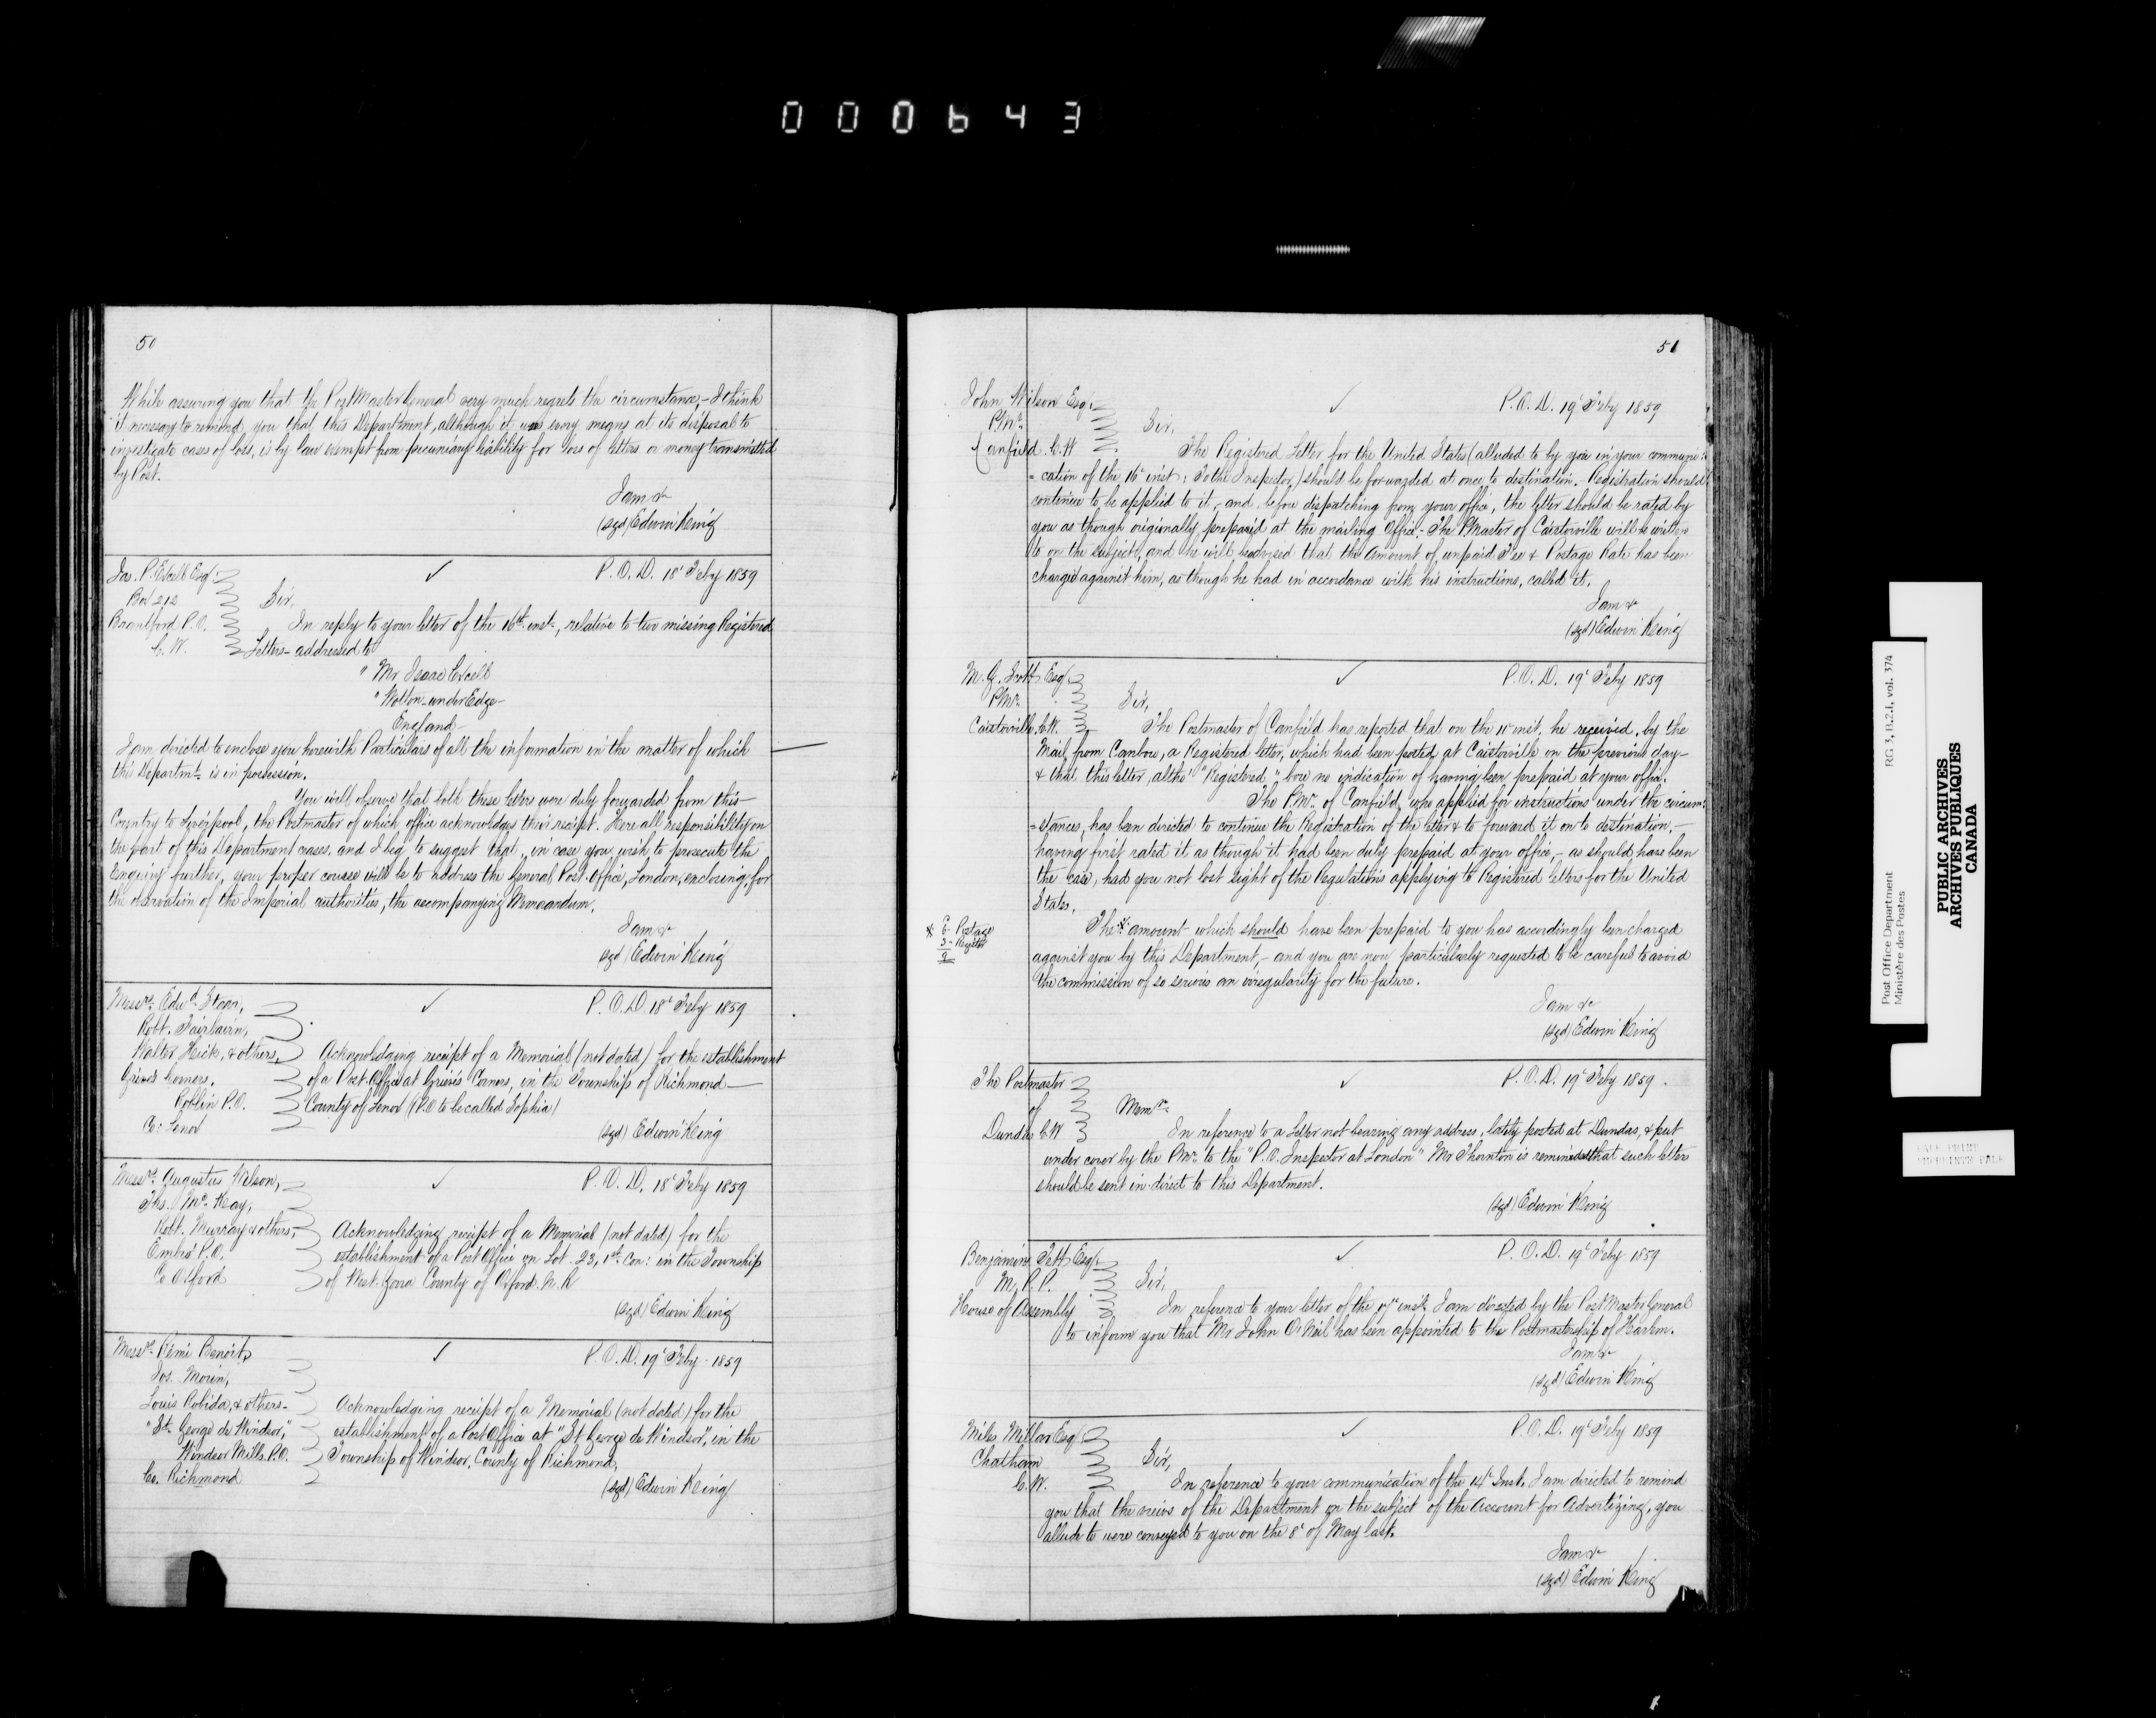 000643
50
While assuring you that the Post Master General very much regrets the circumstance,- I think
it necessary to remind you that this Department, although it uses every means at its disposal to
investigate cases of loss, is by law exempt from pecuniary liability for loss of letters or money transmitted
by Post.
I am &c
(sgd) Edwin King
Jas. P. Excell Esq:
Box 212
Brantford P.O.
C. W.
P. O. D. 18' Feby 1859
Sir,
In reply to your letter of the 16th inst., relative to two missing Registered
Letters - addressed to
" Mr Isaac Excell
" Wotton-under Edge-
England-
I am directed to enclose you herewith Particulars of all the information in the matter of which
this Departmt. is in possession.
You will observe that both these letters were duly forwarded from this-
Country to Liverpool, the Postmaster of which office acknowledges their receipt. Here all responsibility on
the part of this Department ceases, and I beg to suggest that, in case you wish to prosecute the
Enquiry further, your proper course will be to address the General Post Office, London, enclosing, for
the observation of the Imperial authorities, the accompanying Memorandum.
I am &c
sgd) Edwin King
Messrs. Edwd. Storr,
Robt. Fairbairn,
Walter Hick, & others,
Grieve's Corners.
Roblin P.O.
Co: Lenox
P. O. D. 18' Feby 1859
Acknowledging receipt of a Memorial (not dated) for the establishment
of a Post-Office at Grieve's Corners, in the Township of Richmond —
County of Lenox (P.O to be called Sophia)
(sgd) Edwin King
Messrs. Augustus Wilson,
Ths. Mc. Kay,
Robt. Murray & others,
Embro P.O.
Co Oxford
P. O. D. 18' Feby 1859
Acknowledging receipt of a Memorial (not dated) for the
establishment of a Post Office on Lot. 23, 1st. Con: in the Township
of West-Zorra County of Oxford. N. R
(sgd) Edwin King
Messrs. Rémi Benoit,
Jos. Morin,
Louis Robida, & others-
"St. George de Windsor,"
Windsor Mills. P.O.
Co. Richmond
P. O. D. 19' Feby - 1859
Acknowledging receipt of a Memorial (not dated) for the
establishment of a Post Office at "St George de Windsor", in the
Township of Windsor, County of Richmond,
(sgd) Edwin King
51
John Wilson Esq:
P.Mr.
Canfield. C.W
P. O. D. 19' Feby 1859
Sir,
The Registered Letter for the United States (alluded to by you in your communi-
= cation of the 16' inst: to the Inspector,) should be forwarded at once to destination. Registration should
continue to be applied to it, and, before dispatching from your office, the letter should be rated by
you as though originally prepaid at the mailing Office:- The PMaster of Caistorville will be written
to on the subject, and he will be advised that the Amount of unpaid Fee & Postage Rate has been
charged against him, as though he had in accordance with his instructions, called it.
I am &c
(sgd) Edwin King
M. G. Scott Esq
P.Mr.
Caistorville, C.W.
P. O. D. 19' Feby 1859
Sir,
The Postmaster of Canfield has reported that on the 11' inst. he received, by the
Mail from Canboro, a Registered letter, which had been posted at Caistorville on the previous day-
& that this letter, altho' "Registered" bore no indication of having been prepaid at your office.
The P.Mr. of Canfield, who applied for instructions under the circum-
= stances, has been directed to continue the Registration of the letter & to forward it on to destination, -
having first rated it as though it had been duly prepaid at your office, - as should have been
the case, had you not lost sight of the Regulations applying to Registered letters for the United
States.
* 6. Postage
3 - Register
9
The * amount which should have been prepaid to you has accordingly been charged
against you by this Department, - and you are now particularly requested to be careful to avoid
the commission of so serious an irregularity for the future.
I am &c
(sgd) Edwin King
The Postmaster
of
Dundas C.W
P. O. D. 19' Feby 1859.
Memm.
In reference to a Letter not bearing any address, lately posted at Dundas, & put
under cover by the P.Mr. to the "P.O. Inspector at London" Mr Thornton is reminded that such letters
should be sent in direct to this Department.
(sgd) Edwin King
Benjamin Tett Esq:
M. P. P.
House of Assembly
P. O. D. 19' Feby 1859
Sir,
In reference to your letter of the inst. I am directed by the Post Master General
to inform you that Mr John O'Neil has been appointed to the Postmastership of Harlem.
I am &c
(sgd) Edwin King
Miles Millar Esq
Chatham
C. W.
P. O. D. 19' Feby 1859
Sir,
In reference to your communication of the 14' Inst. I am directed to remind
you that the views of the Department on the subject of the Account for Advertizing, you
allude to were conveyed to you on the 8' of May last.
I am &c
(sgd) Edwin King
Post Office Department RG 3, B.2.1, vol. 374
Ministère des Postes
PUBLIC ARCHIVES
ARCHIVES PUBLIQUES
CANADA